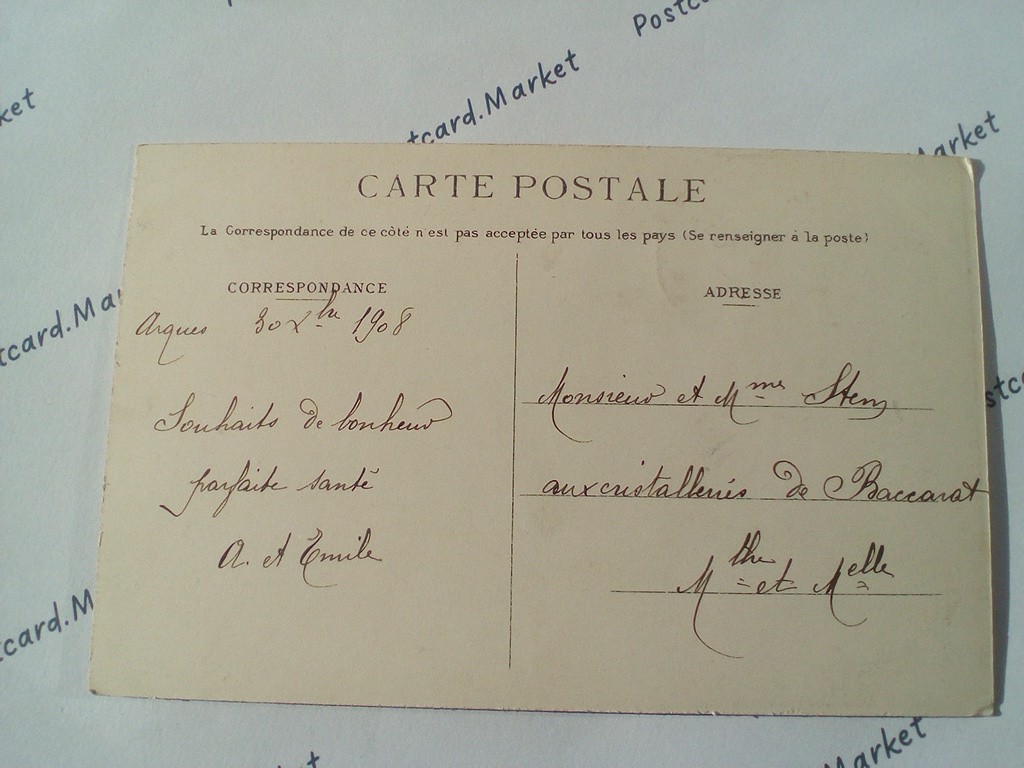 Postcard.Market
CARTE POSTALE
La Correspondance de ce côté n'est pas acceptée par tous les pays (Se renseigner à la poste)
CORRESPONDANCE
Arques 30 Xbre 1908
Souhaits de bonheur
parfaite santé
A. et Emile
ADRESSE
Monsieur et Mme Stem
aux cristalleries de Baccarat
Mthe et Melle